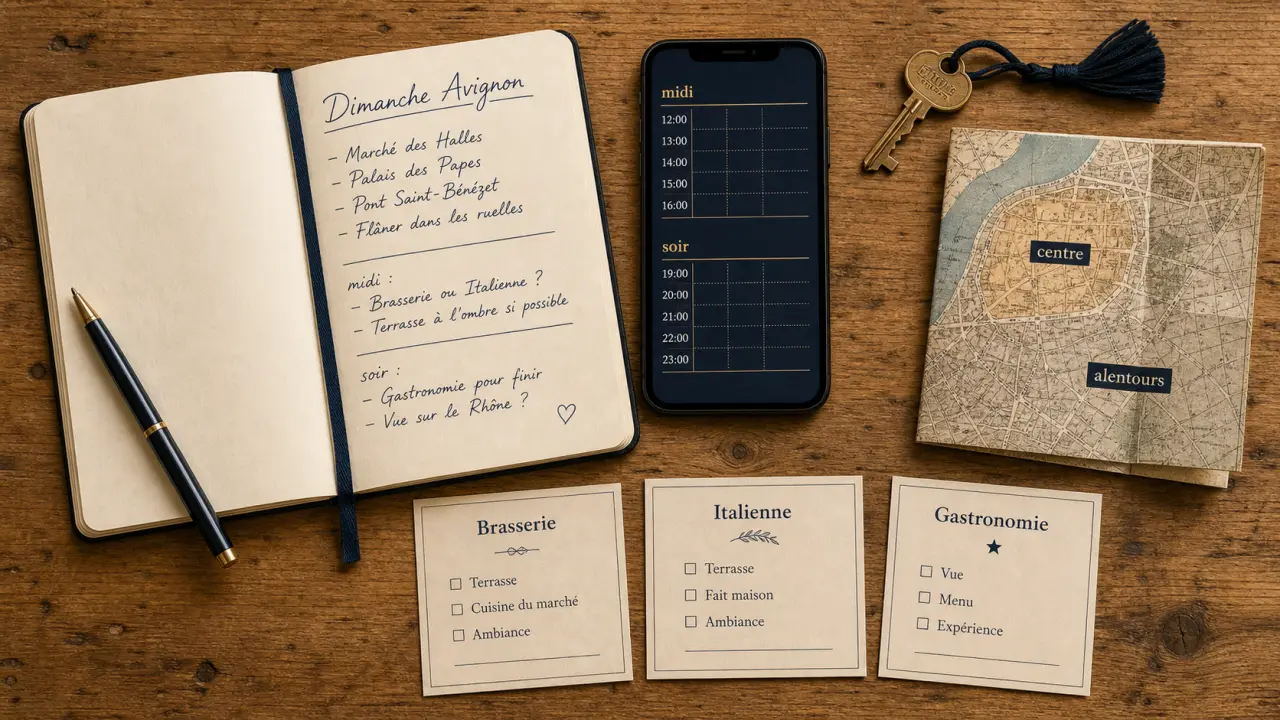 Dimanche Avignon
– Marché des Halles
– Palais des Papes
– Pont Saint-Bénézet
– Flâner dans les ruelles
midi :
– Brasserie ou Italienne ?
– Terrasse à l'ombre si possible
soir :
– Gastronomie pour finir
– Vue sur le Rhône ?
midi
12:00
13:00
14:00
15:00
16:00
soir
19:00
20:00
21:00
22:00
23:00
centre
alentours
Brasserie
Terrasse
Cuisine du marché
Ambiance
Italienne
Terrasse
Fait maison
Ambiance
Gastronomie
Vue
Menu
Expérience